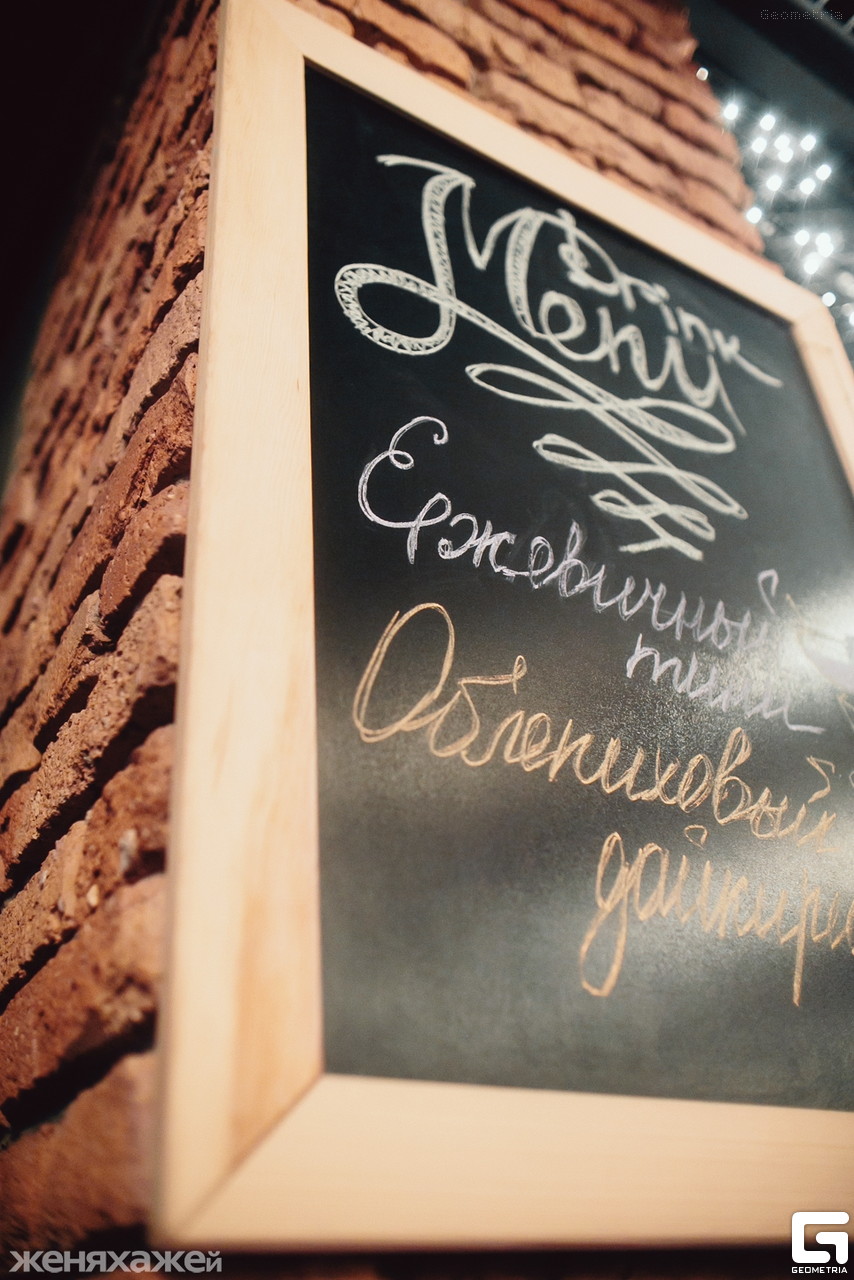 Geometria
Drink
Menu
Ежевичный
тики
Облепиховый
дайкири
женяхажей
GEOMETRIA